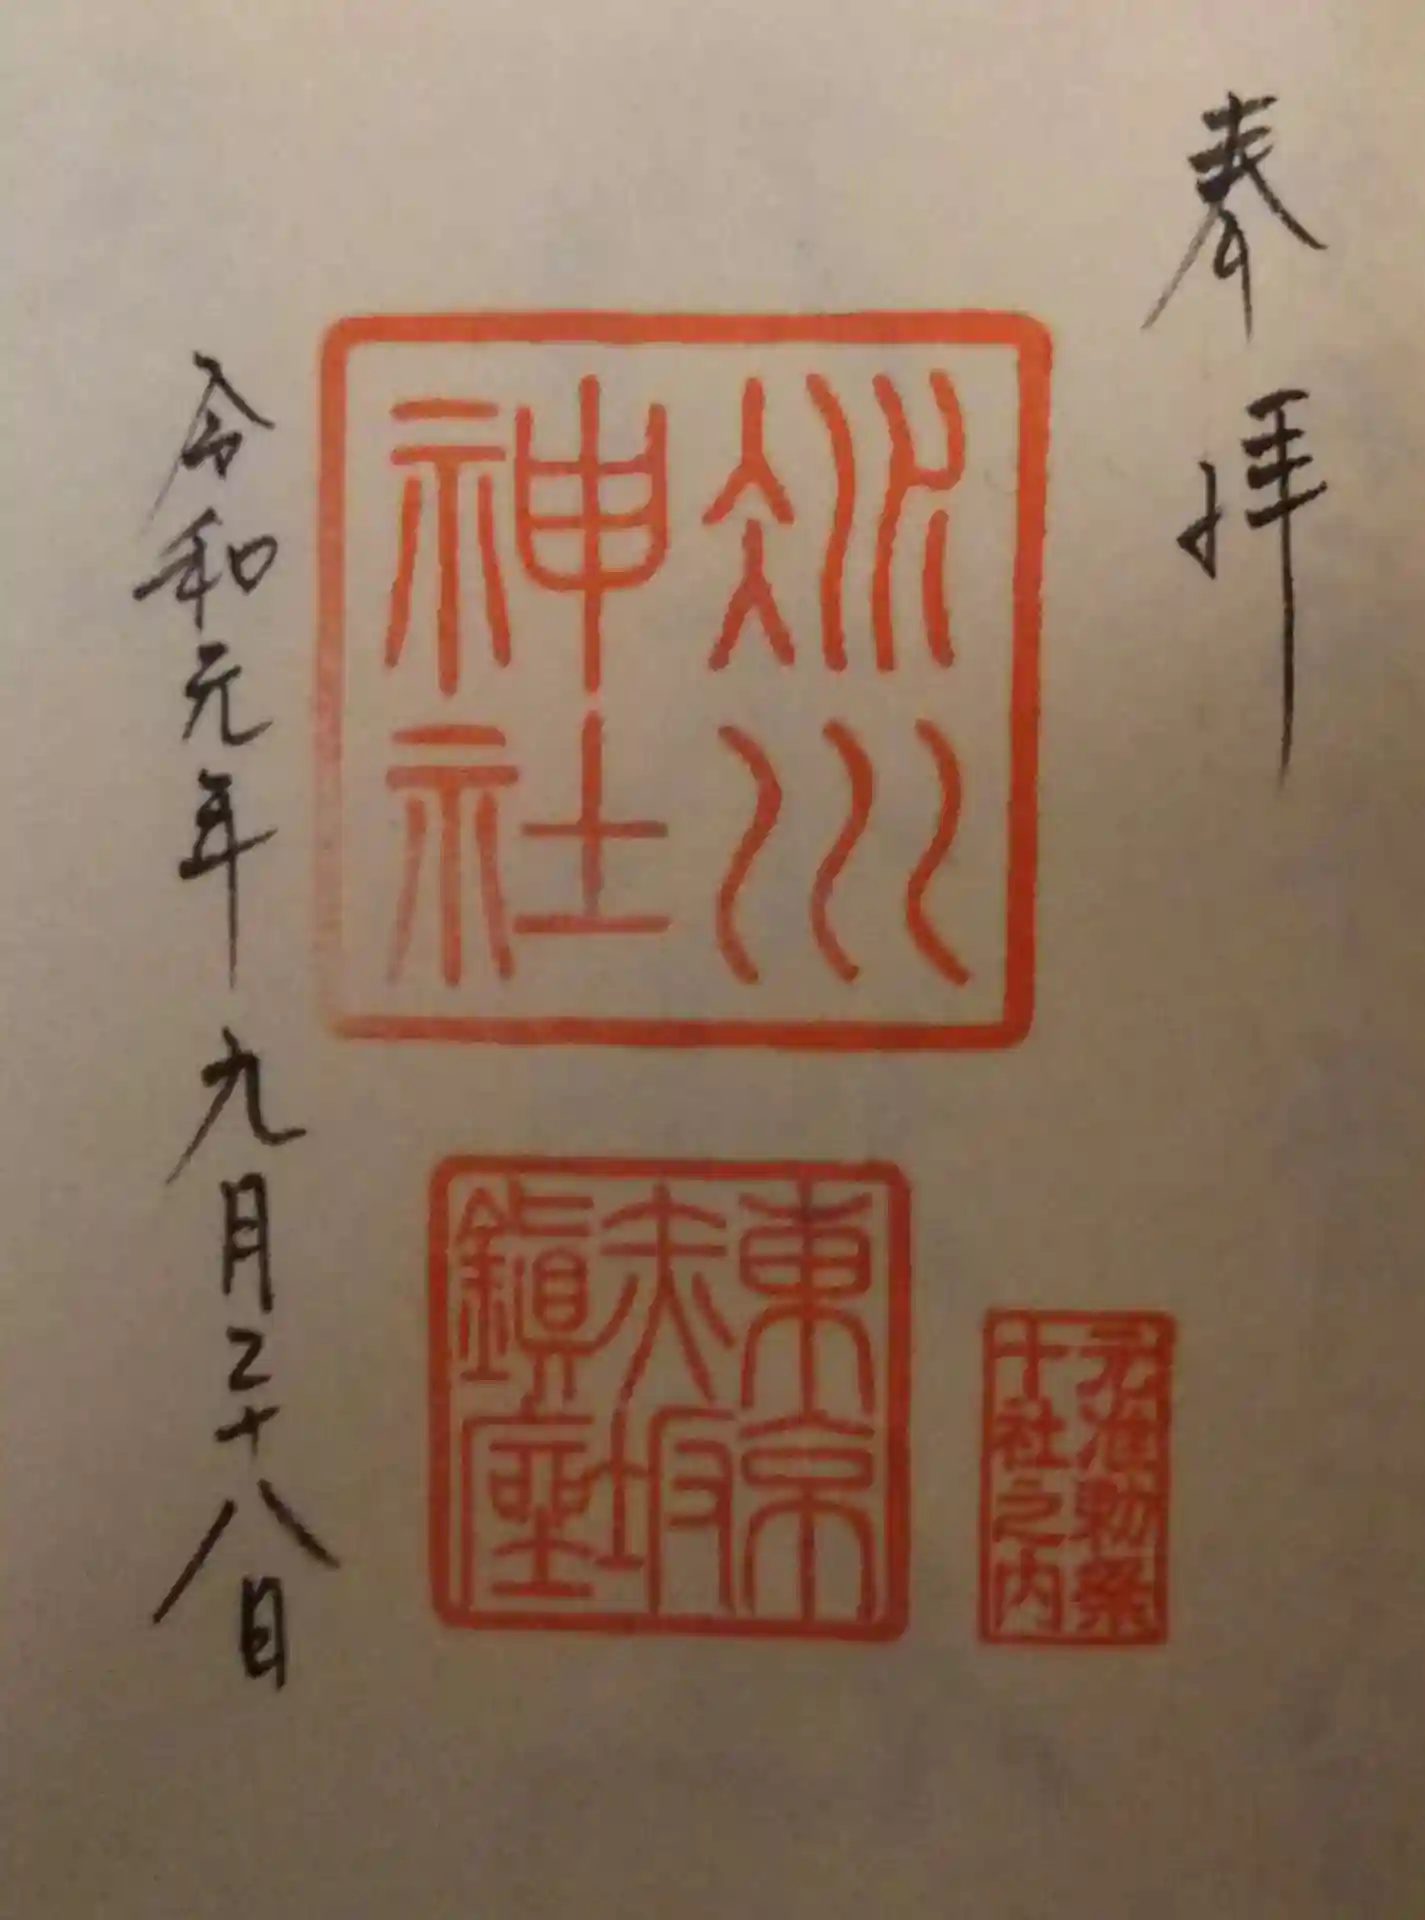 奉拝
氷川
神社
東京
赤坂
鎮座
元准勅祭
十社之内
令和元年九月二十八日